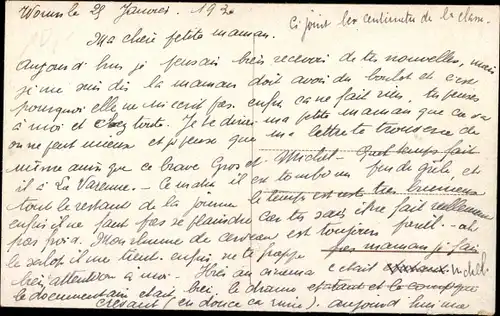 Worms le 25 Janvier. 192
Ci joint les centimètres de la classe.
Ma chère petite maman.
Aujourd'hui je pensais bien recevoir de tes nouvelles, mais
je me suis dis la maman doit avoir du boulot et c'est
pourquoi elle ne m'écrit pas. enfin ça ne fait rien, tu penses
à moi et c'est tout. Je te dirai ma petite maman que ça va
on ne peut mieux et je pense que ma lettre te trouvera de
même ainsi que ce brave Gros et Michel - Quel temps fait
il à La Varenne. - Ce matin il est tombé un peu de grêle, et
tout le restant de la journée le temps est resté très brumeux
enfin il ne faut pas se plaindre car tu sais il ne fait réellement
pas froid. Mon rhume de cerveau est toujours pareil - ah
le salop il me tient. enfin ne te frappe pas maman je fais
bien attention à moi - Hier au cinéma c'était
le documentaire était bien, le drame était et le comique
crevant (en douce ça rime). aujourd'hui ma